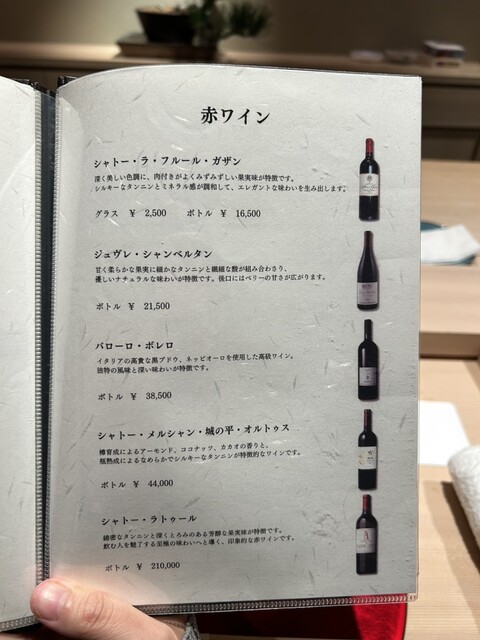 赤ワイン
シャトー・ラ・フルール・ガザン
深く美しい色調に、肉付きがよくみずみずしい果実味が特徴です。
シルキーなタンニンとミネラル感が調和して、エレガントな味わいを生み出します。
グラス ¥ 2,500 ボトル ¥ 16,500
ジュヴレ・シャンベルタン
甘く柔らかな果実に細かなタンニンと繊細な酸が組み合わさり、
優しいナチュラルな味わいが特徴です。後口にはベリーの甘さが広がります。
ボトル ¥ 21,500
バローロ・ボレロ
イタリアの高貴な黒ブドウ、ネッビオーロを使用した高級ワイン。
独特の風味と深い味わいが特徴です。
ボトル ¥ 38,500
シャトー・メルシャン・城の平・オルトゥス
樽育成によるアーモンド、ココナッツ、カカオの香りと、
瓶熟成によるなめらかでシルキーなタンニンが特徴的なワインです。
ボトル ¥ 44,000
シャトー・ラトゥール
綿密なタンニンと深くとろみのある芳醇な果実味が特徴です。
飲む人を魅了する至極の味わいへと導く、印象的な赤ワインです。
ボトル ¥ 210,000